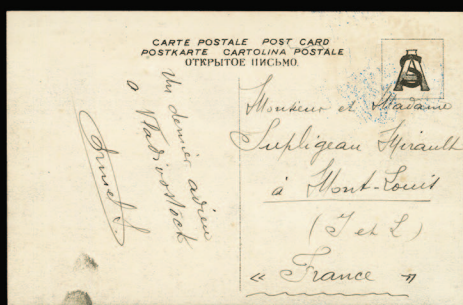 CARTE POSTALE POST CARD
POSTKARTE CARTOLINA POSTALE
ОТКРЫТОЕ ПИСЬМО.
AS
Un dernier adieu
a Vladivostock
Monsieur et Madame
Supligeau Mirault
à Mont-Louis
(I et L)
« France »